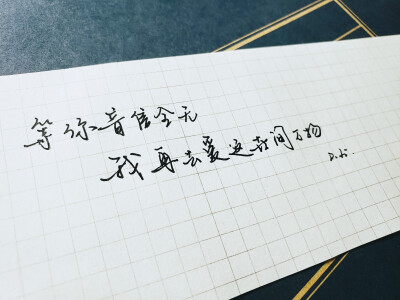 等你音信全无
我再去爱这世间万物